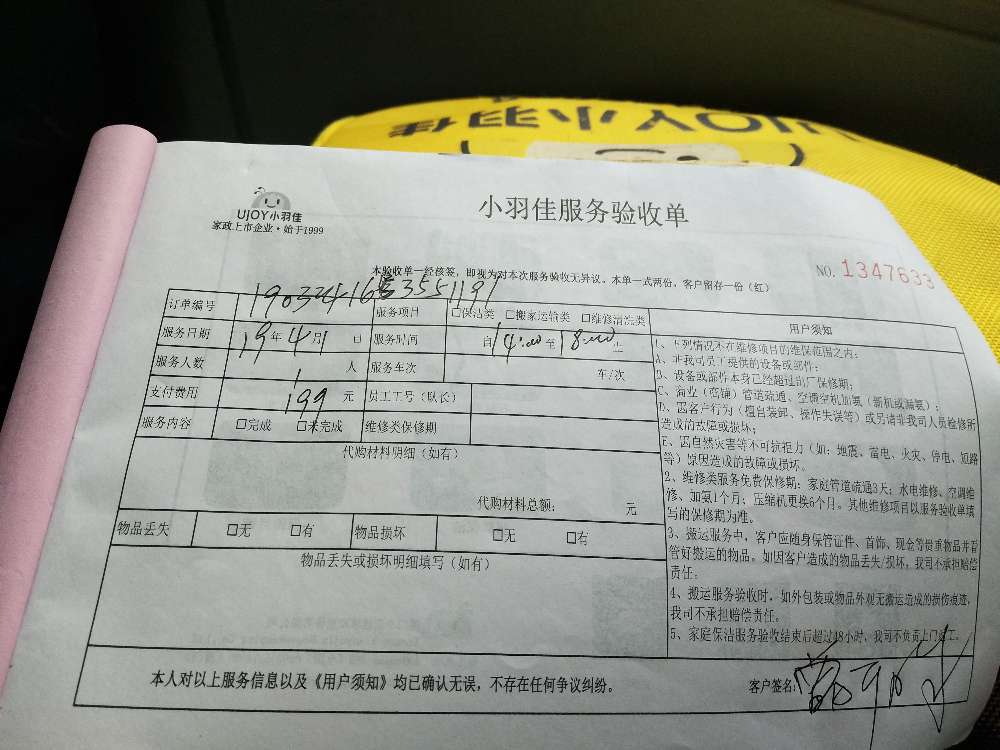 UJOY小羽佳
UJOY小羽佳
家政上市企业·始于1999
小羽佳服务验收单
NO. 1347633
本验收单一经核签，即视为对本次服务验收无异议。本单一式两份，客户留存一份（红）
订单编号 服务项目 □保洁类 □搬家运输类 □维修清洗类
服务日期 19年4月1日 服务时间 自14:00至18:00止
服务人数 1人 服务车次 车/次
支付费用 199元 员工工号（队长）
服务内容 □完成 □未完成 维修类保修期
代购材料明细（如有）
代购材料总额： 元
物品丢失 □无 □有 物品损坏 □无 □有
物品丢失或损坏明细填写（如有）
用户须知
1、下列情况不在维修项目的维保范围之内：
A、非我司员工提供的设备或部件；
B、设备或部件本身已经超过出厂保修期；
C、商业（店铺）管道疏通、空调空机加氨（新机或漏氨）；
D、因客户行为（擅自装卸、操作失误等）或另请非我司人员检修所
造成的故障或损坏；
E、因自然灾害等不可抗拒力（如：地震、雷电、火灾、停电、短路
等）原因造成的故障或损坏。
2、维修类服务免费保修期：家庭管道疏通3天；水电维修、空调维
修、加氨1个月；压缩机更换6个月。其他维修项目以服务验收单填
写的保修期为准。
3、搬运服务中，客户应随身保管证件、首饰、现金等贵重物品并看
管好搬运的物品。如因客户造成的物品丢失/损坏，我司不承担赔偿
责任；
4、搬运服务验收时，如外包装或物品外观无搬运造成的损伤痕迹，
我司不承担赔偿责任。
5、家庭保洁服务验收结束后超过48小时，我司不负责上门返工。
本人对以上服务信息以及《用户须知》均已确认无误，不存在任何争议纠纷。
客户签名：